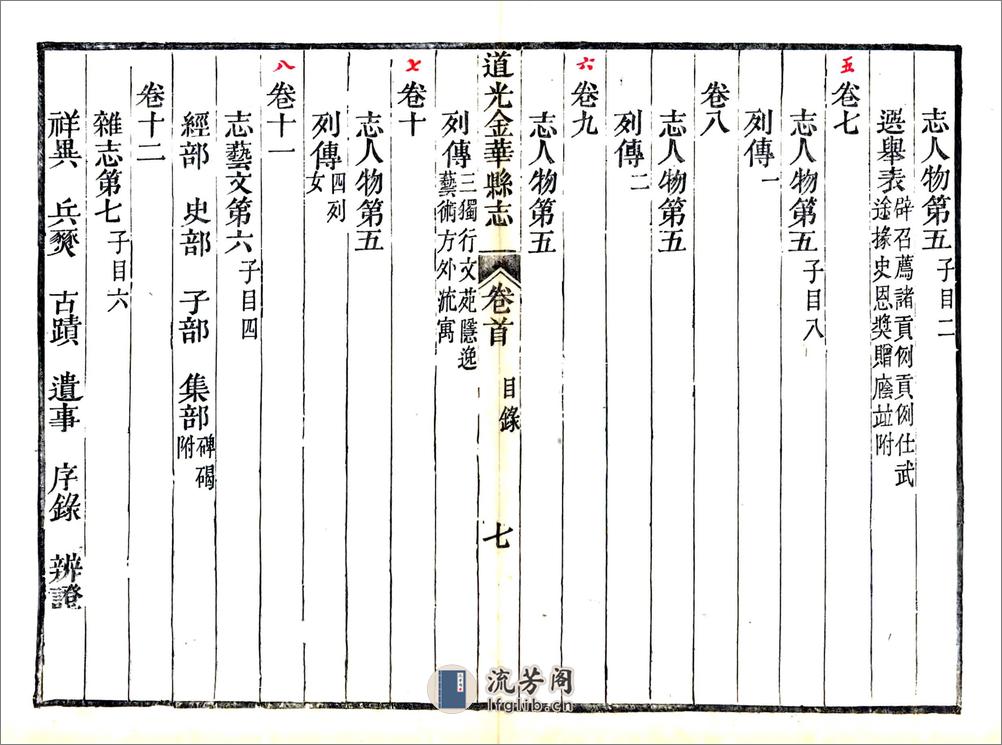 志人物第五子目二
選舉表辟召薦諸貢例貢例仕武
途掾史恩奬贈廕竝附
五
卷七
志人物第五子目八
列傳一
卷八
志人物第五
列傳二
六
卷九
志人物第五
道光金華縣志 卷首 目錄 七
列傳三獨行文苑隱逸
藝術方外流寓
七
卷十
志人物第五
列傳四列
女
八
卷十一
志藝文第六子目四
經部 史部 子部 集部碑碣
附
卷十二
雜志第七子目六
祥異 兵燹 古蹟 遺事 序錄 辨證
流芳阁
lfglib.cn